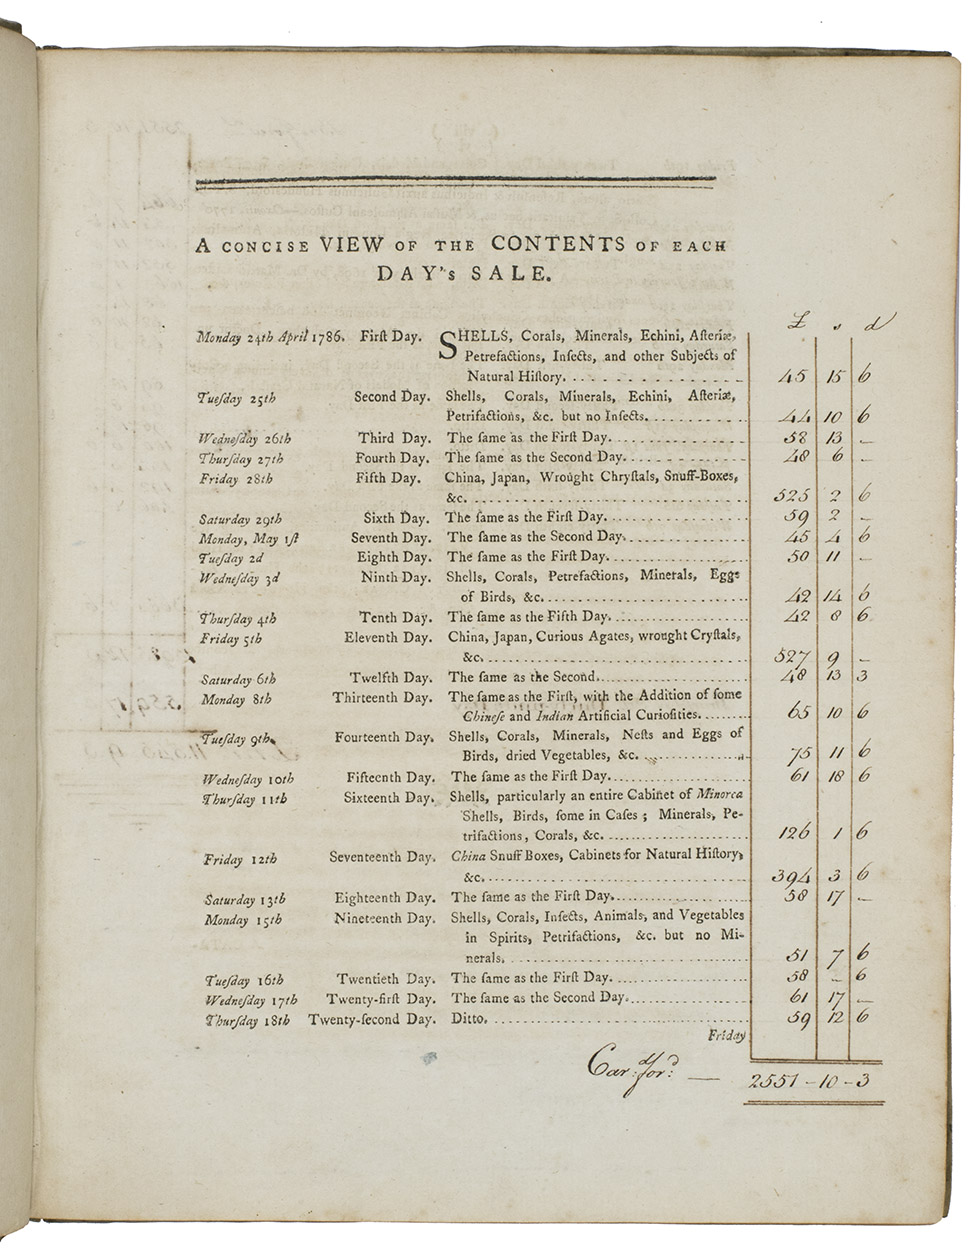 A CONCISE VIEW OF THE CONTENTS OF EACH
DAY's SALE.
£ s d
Monday 24th April 1786. Firſt Day. SHELLS, Corals, Minerals, Echini, Aſteriæ,
Petrefactions, Inſects, and other Subjects of
Natural Hiſtory. 45 15 6
Tueſday 25th Second Day. Shells, Corals, Minerals, Echini, Aſteriæ,
Petrifactions, &c. but no Inſects. 44 10 6
Wedneſday 26th Third Day. The ſame as the Firſt Day. 58 13 –
Thurſday 27th Fourth Day. The ſame as the Second Day. 48 6 –
Friday 28th Fifth Day. China, Japan, Wrought Chryſtals, Snuff-Boxes,
&c. 525 2 6
Saturday 29th Sixth Day. The ſame as the Firſt Day. 59 2 –
Monday, May 1ſt Seventh Day. The ſame as the Second Day. 45 4 6
Tueſday 2d Eighth Day. The ſame as the Firſt Day. 50 11 –
Wedneſday 3d Ninth Day. Shells, Corals, Petrefactions, Minerals, Eggs
of Birds, &c. 42 14 6
Thurſday 4th Tenth Day. The ſame as the Fifth Day. 42 8 6
Friday 5th Eleventh Day. China, Japan, Curious Agates, wrought Cryſtals,
&c. 527 9 –
Saturday 6th Twelfth Day. The ſame as the Second. 48 13 3
Monday 8th Thirteenth Day. The ſame as the Firſt, with the Addition of ſome
Chineſe and Indian Artificial Curioſities. 65 10 6
Tueſday 9th Fourteenth Day. Shells, Corals, Minerals, Neſts and Eggs of
Birds, dried Vegetables, &c. 75 11 6
Wedneſday 10th Fifteenth Day. The ſame as the Firſt Day. 61 18 6
Thurſday 11th Sixteenth Day. Shells, particularly an entire Cabinet of Minorca
Shells, Birds, ſome in Caſes; Minerals, Pe-
trifactions, Corals, &c. 126 1 6
Friday 12th Seventeenth Day. China Snuff Boxes, Cabinets for Natural Hiſtory,
&c. 394 3 6
Saturday 13th Eighteenth Day. The ſame as the Firſt Day. 58 17 –
Monday 15th Nineteenth Day. Shells, Corals, Inſects, Animals, and Vegetables
in Spirits, Petrifactions, &c. but no Mi-
nerals. 51 7 6
Tueſday 16th Twentieth Day. The ſame as the Firſt Day. 58 – 6
Wedneſday 17th Twenty-firſt Day. The ſame as the Second Day. 61 17 –
Thurſday 18th Twenty-ſecond Day. Ditto. 59 12 6
Friday
Car:d for:d — 2551-10-3